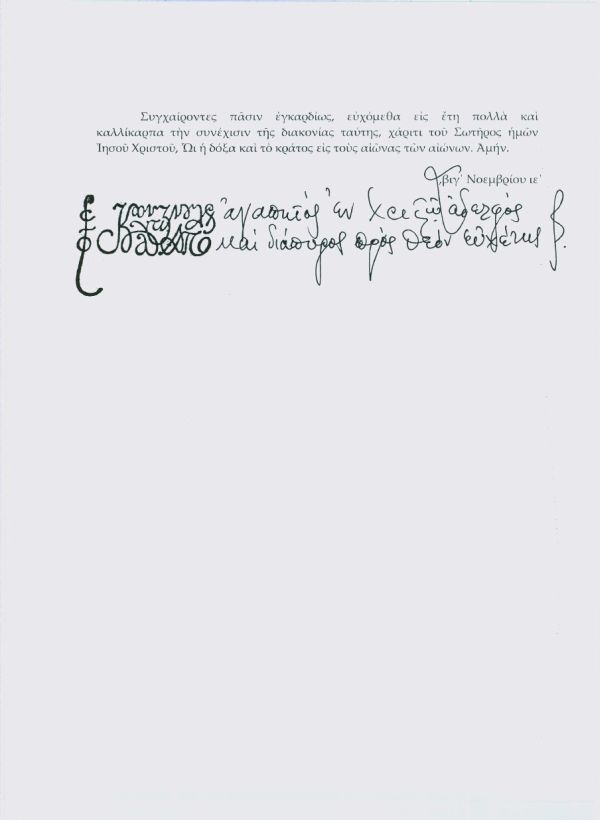 Συγχαίροντες πᾶσιν ἐγκαρδίως, εὐχόμεθα εἰς ἔτη πολλὰ καὶ
καλλίκαρπα τὴν συνέχισιν τῆς διακονίας ταύτης, χάριτι τοῦ Σωτῆρος ἡμῶν
Ἰησοῦ Χριστοῦ, Ὧι ἡ δόξα καὶ τὸ κράτος εἰς τοὺς αἰῶνας τῶν αἰώνων. Ἀμήν.
͵βιγ' Νοεμβρίου ιε'
ἀγαπητὸς ἐν Χριστῷ ἀδελφὸς
καὶ διάπυρος πρὸς Θεὸν εὐχέτης